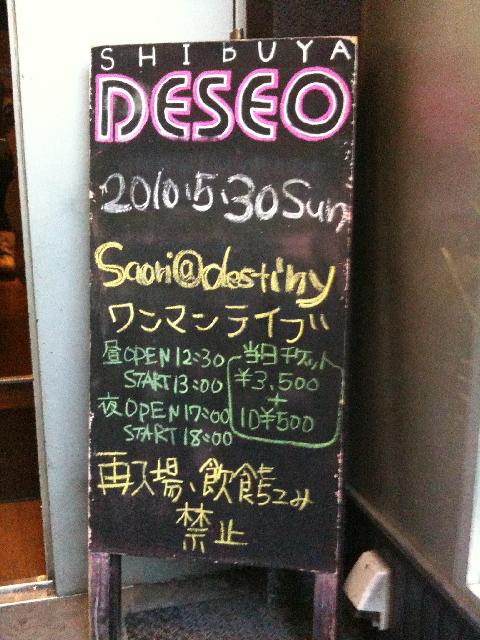 SHIBUYA
DESEO
2010.5.30Sun
Saori@destiny
ワンマンライブ
昼OPEN12:30
START13:00
夜OPEN17:00
START18:00
当日チケット
¥3,500
+
1D¥500
再入場、飲食持ちこみ
禁止